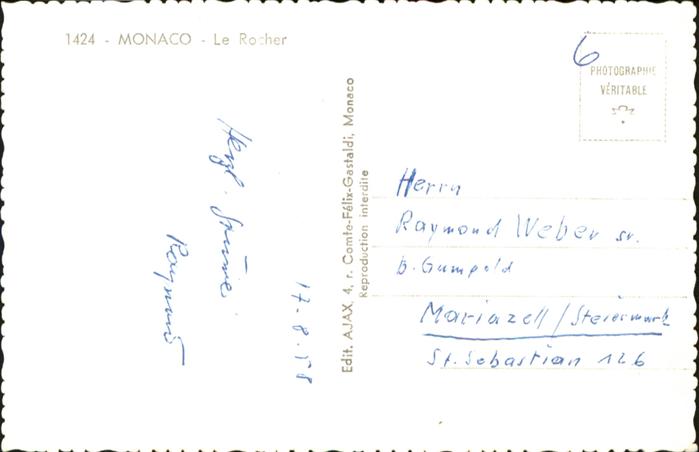 1424 - MONACO - Le Rocher
Herzl. Grüsse
Raymund
17.8.58
Edit. AJAX, 4, r. Comte-Félix-Gastaldi, Monaco
Reproduction interdite
6
PHOTOGRAPHIE
VÉRITABLE
Herrn
Raymond Weber sr.
b. Gumpold
Mariazell / Steiermark
St. Sebastian 126